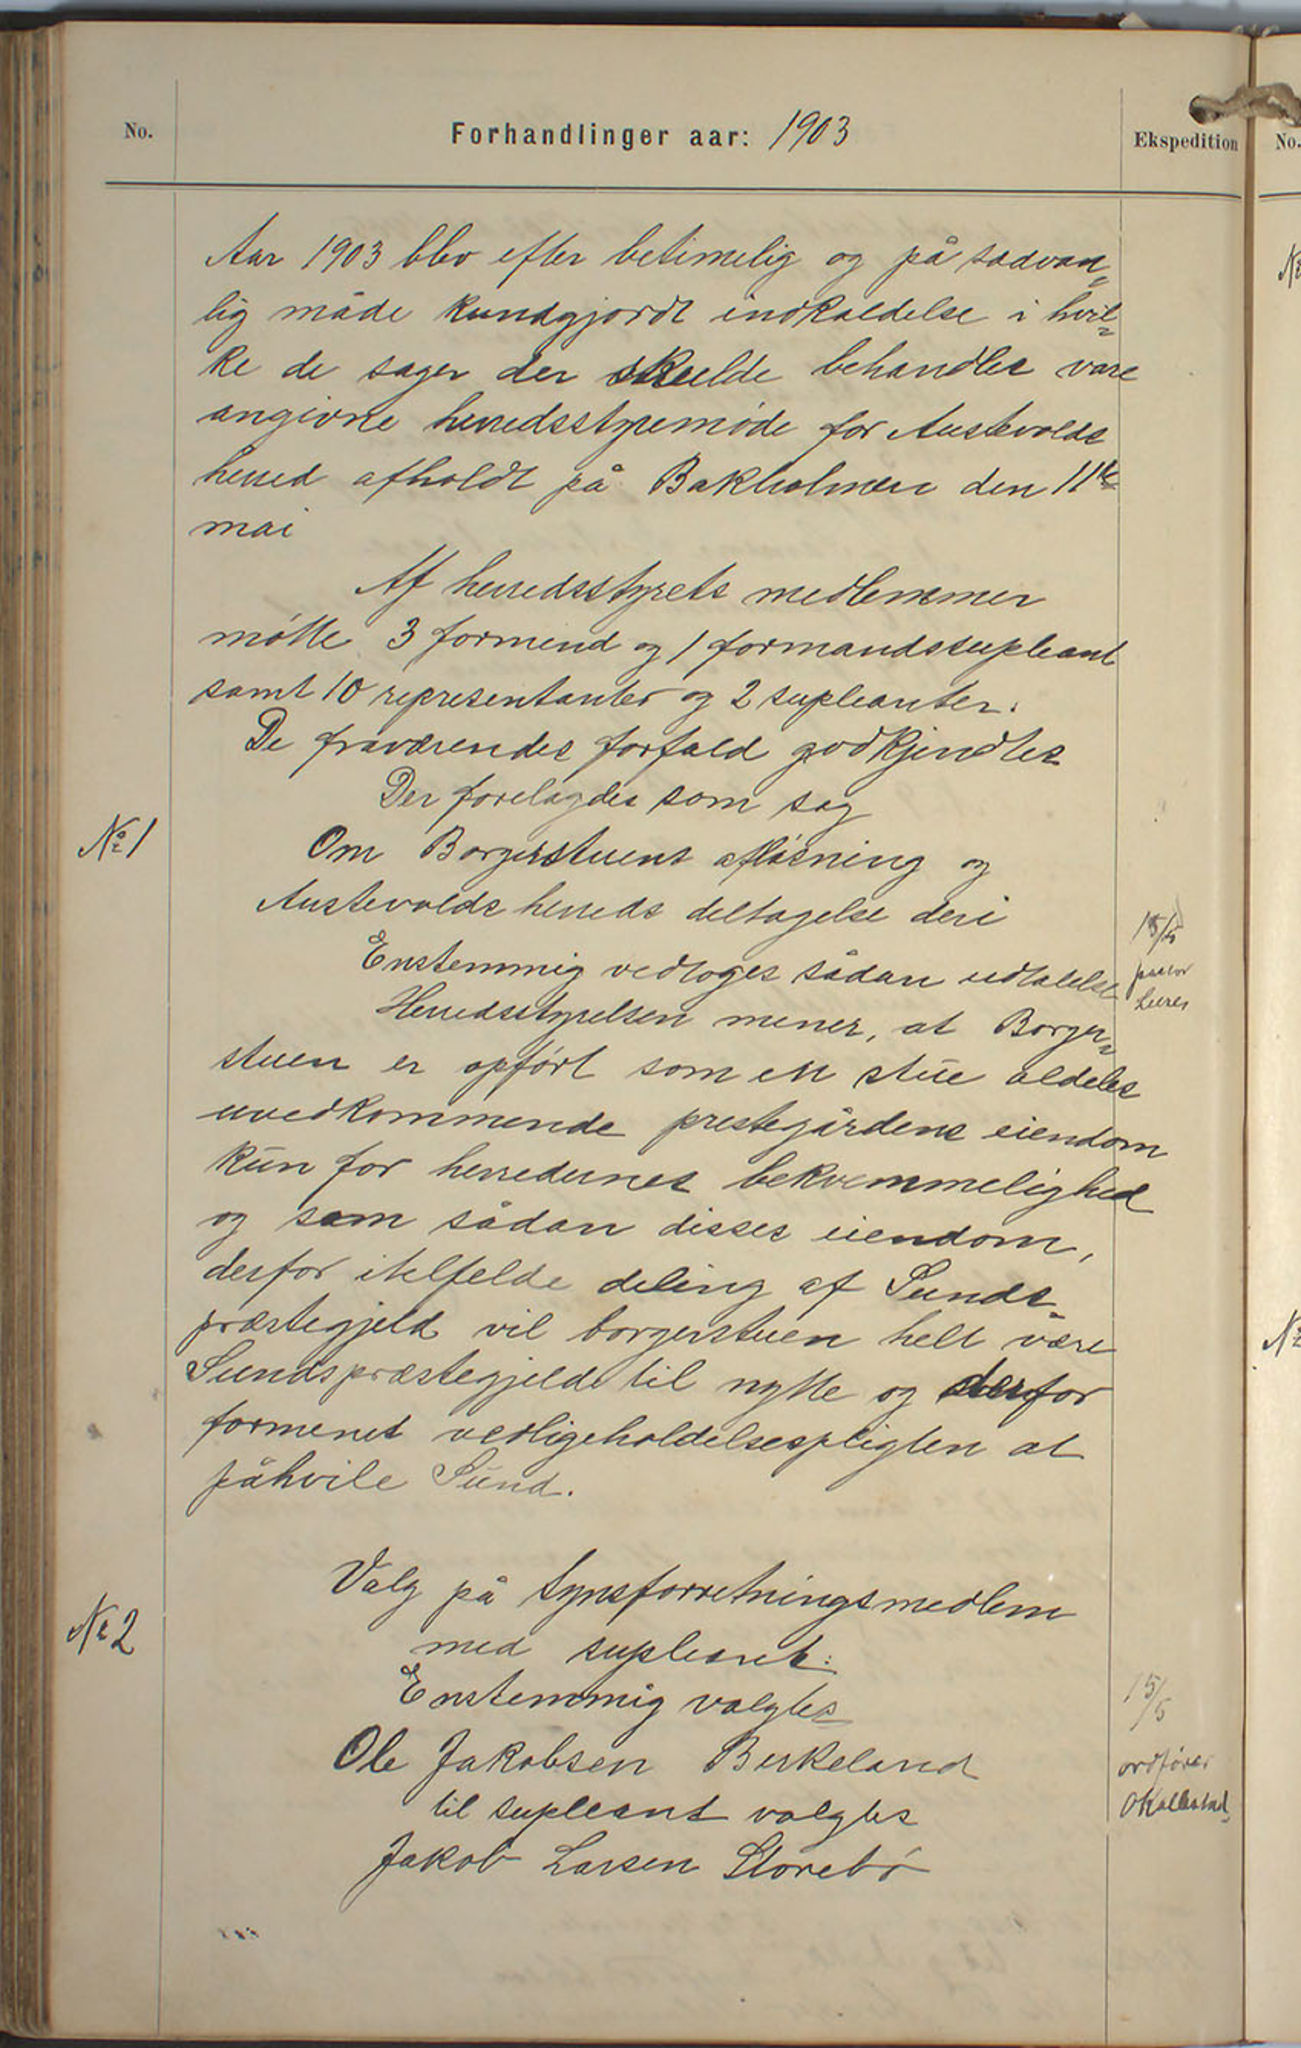 No.
Forhandlinger aar: 1903
Ekspedition
No.
Aar 1903 blev efter betimelig og på sædvan„
lig måde kundgjordt indkaldelse i hvil„
ke de sager der skulde behandles vare
angivne herredsstyremöde for Austevolds
herred afholdt på Bakholmen den 11te
mai
Af herredsstyrets medlemmer
mötte 3 formend og 1 formandssupleant
samt 10 representanter og 2 supleanter.
De fraværendes forfald godkjendtes
Der forelagdes som sag
No 1
Om Borgerstuens aflösning og
Austevolds herreds deltagelse deri
15/5
Enstemmig vedtoges sådan udtalelse
Herredsstyrelsen mener, at Borger„
stuen er opfört som en stue aldeles
uvedkommende prestegårdens eiendom
kun for herredernes bekvemmelighed
og som sådan disses eiendom,
derfor itelfelde deling af Sunds„
præstegjeld vil borgerstuen helt være
Sundspræstegjelds til nytte og derfor
formenes vedligeholdelsespligten at
påhvile Sund.
No 2
Valg på Synsforretningsmedlem
med supleant:
Enstemmig valgtes
15/5
Ole Jakobsen Birkeland
ordförer
til supleant valgtes
OKallestad
Jakob Larsen Storebö